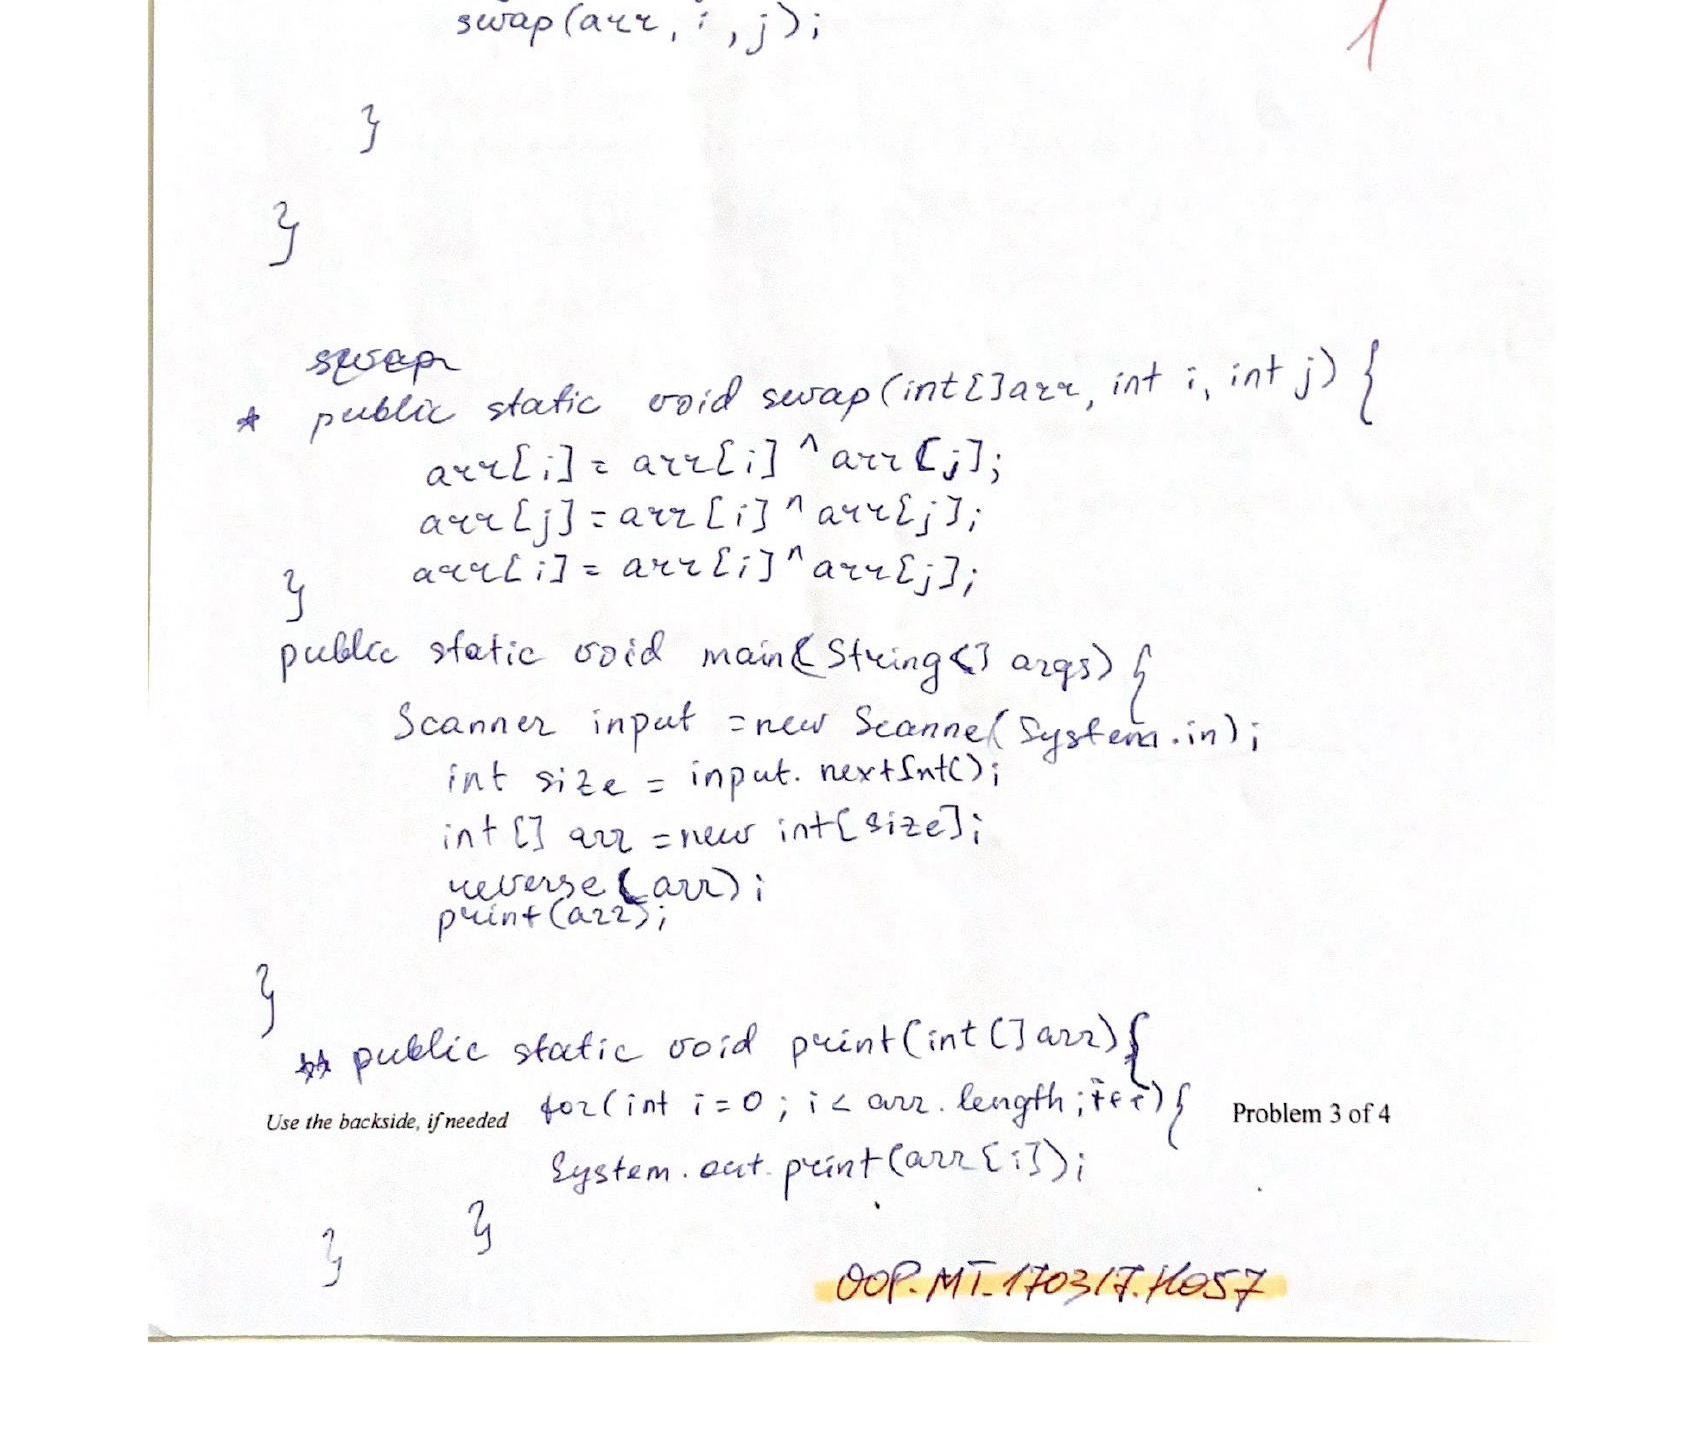 swap(arr, i, j);
1
}
}
swap
* public static void swap(int[]arr, int i, int j) {
arr[i] = arr[i] ^ arr[j];
arr[j] = arr[i] ^ arr[j];
arr[i] = arr[i] ^ arr[j];
}
public static void main(String[] args) {
Scanner input = new Scanne(System.in);
int size = input.nextInt();
int[] arr = new int[size];
reverse(arr);
print(arr);
}
** public static void print(int[]arr){
for(int i=0; i< arr.length; i++){
Use the backside, if needed
Problem 3 of 4
System.out.print(arr[i]);
}
}
OOP.MT.170317.H057